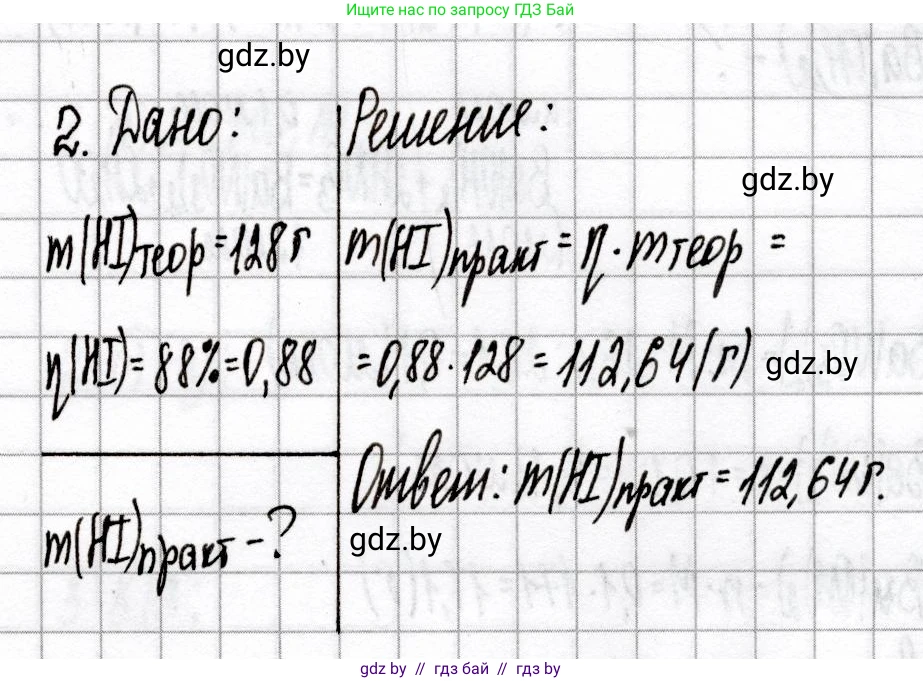 Ищите нас по запросу ГДЗ Бай
gdz.by
2. Дано:
Решение:
gdz.by
m(HI)теор = 128 г
m(HI)практ = η · mтеор =
η(HI) = 88% = 0,88
= 0,88 · 128 = 112,64 (г)
gdz.by
Ответ: m(HI)практ = 112,64 г.
m(HI)практ - ?
gdz.by
gdz by // гдз бай // гдз by